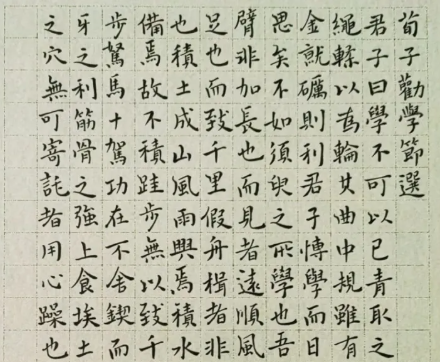 荀子勸學節選
君子曰學不可以已青取之
繩輮以為輪其曲中規雖有
金就礪則利君子博學而日
思矣不如須臾之所學也吾
臂非加長也而見者遠順風
足也而致千里假舟楫者非
也積土成山風雨興焉積水
備焉故不積跬步無以致千
步駑馬十駕功在不舍鍥而
牙之利筋骨之強上食埃土
之穴無可寄託者用心躁也